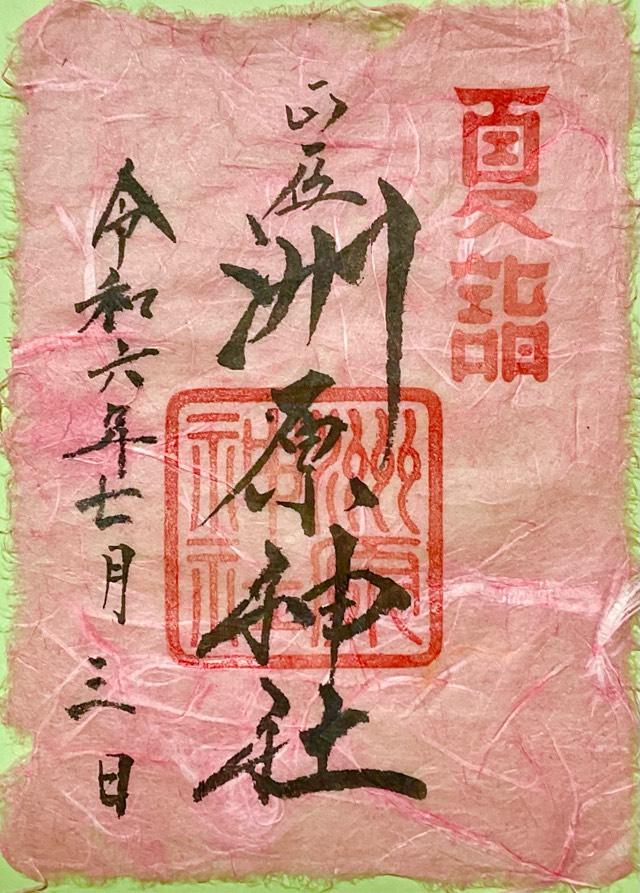 夏詣
正一位
洲原神社
洲原
神社
令和六年七月三日